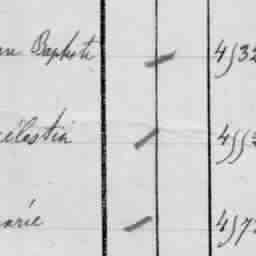 an Baptiste 4532
élestin 4553
arie 457